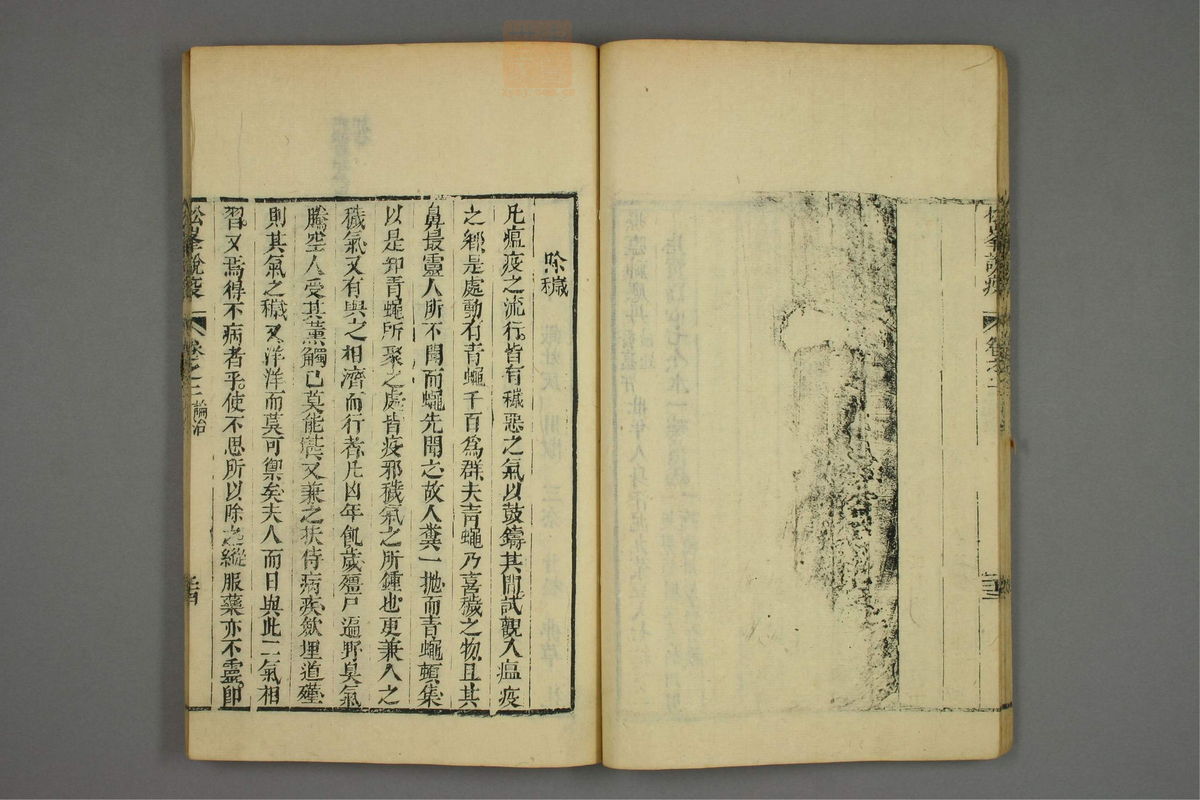 松峯說疫
卷之二
除穢
凡瘟疫之流行皆有穢惡之氣以鼓鑄其間試觀入瘟疫
之鄉是處動有青蠅千百為群夫青蠅乃喜穢之物且其
鼻最靈人所不聞而蠅先聞之故人糞一拋而青蠅頓集
以是知青蠅所聚之處皆疫邪穢氣之所鍾也更兼人之
穢氣又有與之相濟而行者凡凶年飢歲殭尸遍野臭氣
騰空人受其薰觸已莫能堪又兼之扶侍病疾斂埋道殣
則其氣之穢又洋洋而莫可禦矣夫人而日與此二氣相
習又焉得不病者乎使不思所以除之縱服藥亦不靈即
松峯說疫
卷之二
論治